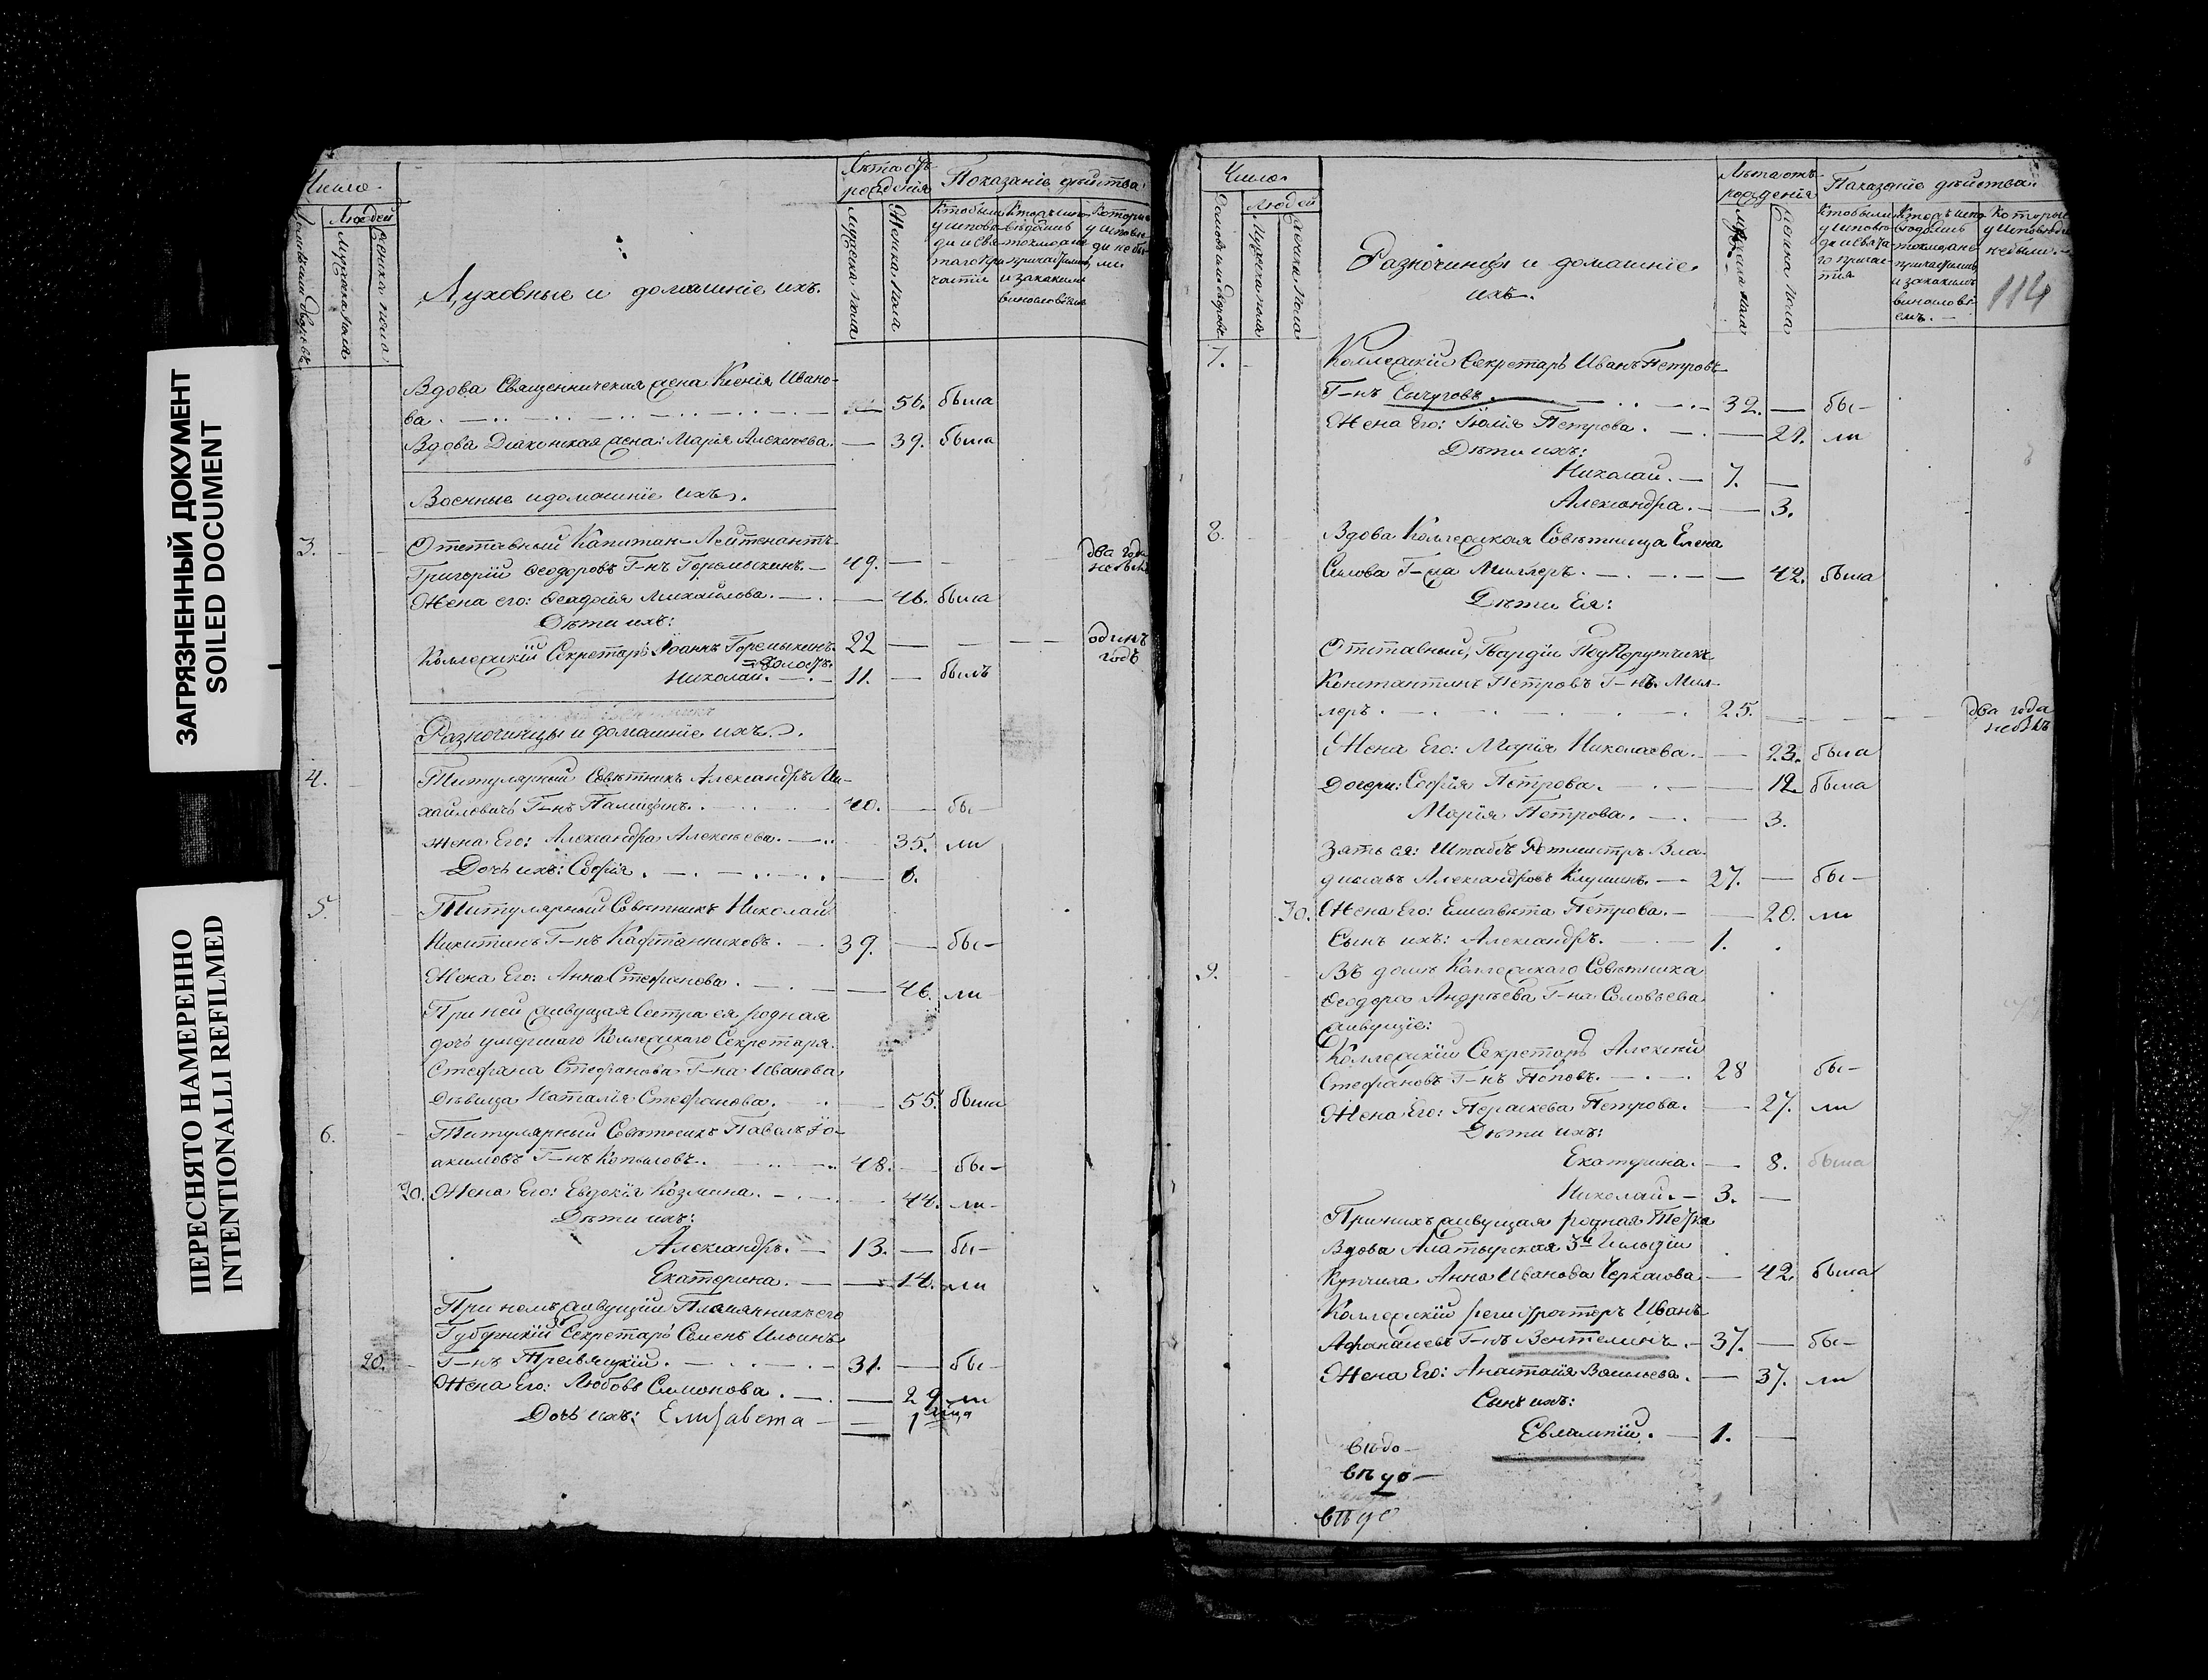 ЗАГРЯЗНЕННЫЙ ДОКУМЕНТ
SOILED DOCUMENT
ПЕРЕСНЯТО НАМЕРЕННО
INTENTIONALLI REFILMED
Число.
Людей
Мужеска пола
Женска пола
Духовные и домашніе ихъ.
Лѣта отъ
рожденія
Мужеска пола
Женска пола
Показаніе дѣйства.
Вдова Священническая жена Ксенія Ивано-
ва. 56. была
Вдова Діаконская жена: Марія Алексѣева. — 39. была
Военные и домашніе ихъ.
3. Отставный Капитан-Лейтенантъ
Григорій Ѳеодоровъ Г-нъ Горемыкинъ. — 49. — два года
Жена его: Михайлова. — 46. была
Дѣти ихъ:
Коллежскій Секретарь Іоаннъ Горемыкинъ 22 — одинъ
годъ
Николай. — 11. — былъ
Разночинцы и домашніе ихъ.
4. Титулярный Совѣтникъ Александръ Ми-
хайловичь Г-нъ Палицынъ. 40. — бы-
Жена Его: Александра Алексѣева. — 35. ли
Дочь ихъ: Софія. — 6.
5. Титулярный Совѣтникъ Николай
Никитинъ Г-нъ Кафтанниковъ. 39. — бы-
Жена Его: Анна Стефанова. — 46. ли
При ней живущая Сестра ея родная
дочь умершаго Коллежскаго Секретаря
Стефана Стефанова Г-на Иванова
Дѣвица Наталія Стефанова. — 55. была
6. Титулярный Совѣтникъ Павелъ Іо-
акимовъ Г-нъ Копыловъ. 48. — бы-
20. Жена Его: Евдокія Козмина. — 44. ли-
Дѣти ихъ:
Александръ. — 13. — бы-
Екатерина. — 14. ли
При немъ живущій Племянникъ его
Губернскій Секретарь Семенъ Ильинъ
20. Г-нъ 31. — бы-
Жена Его: Любовь Симонова. — 29 ли
Дочь ихъ: Елисавета — 1
Число.
Людей
Мужеска пола
Женска пола
Разночинцы и домашніе
ихъ.
Лѣта отъ
рожденія
Мужеска пола
Женска пола
Показаніе дѣйства.
114
7. Коллежскій Секретарь Иванъ Петровъ
Г-нъ 32. — бы-
Жена Его: Юлія Петрова. — 29. ли
Дѣти ихъ:
Николай. — 7. —
Александра. — 3.
8. Вдова Коллежская Совѣтница Елена
Силова Г-жа Миллеръ. — 42. была
Дѣти Ея:
Отставный, Гвардіи ПодПорутчикъ
Константинъ Петровъ Г-нъ Мил-
леръ. 25. — два года
небылъ
Жена Его: Марія Николаева. — 23. была
Дочери: Софія Петрова. — 12 была
Марія Петрова. — 3.
Зять ея: Штабъ Ротмистръ Вла-
диславъ Александровъ 27. — бы-
30. Жена Его: Елисавета Петрова. — 20. ли
Сынъ ихъ: Александръ. — 1.
9. Въ домѣ Коллежскаго Совѣтника
Ѳеодора Андрѣева Г-на Соловьева
живущіе:
Коллежскій Секретарь Алексѣй
Стефановъ Г-нъ Поповъ. 28 бы-
Жена Его: Параскева Петрова. — 27. ли
Дѣти ихъ:
Екатерина. — 8. была
Николай. — 3. —
При нихъ живущая родная Тетка
Вдова Алатырская 3й Гильдіи
Купчиха Анна Иванова Черкасова — 42. была
Коллежскій регистраторъ Иванъ
Афанасьевъ Г-нъ Вентелинъ. — 37. — бы-
Жена Его: Анастасія Васильева. — 37. ли
Сынъ ихъ:
Евлампій. — 1. —
вѣдо-
вѣдо-